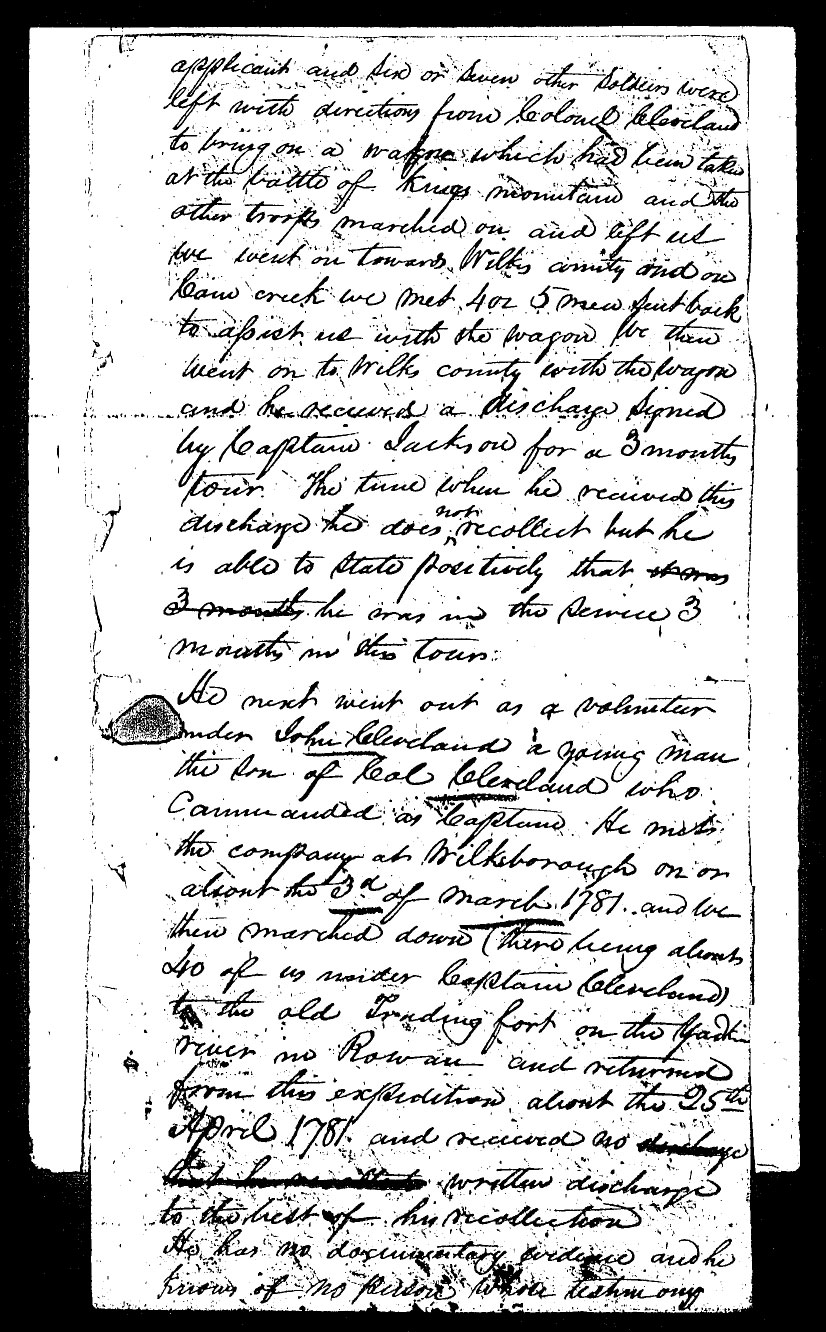 applicant and six or seven other soldiers were
left with directions from Colonel Cleveland
to bring on a wagon which had been taken
at the battle of Kings mountain and the
other troops marched on and left us
we went on towards Wilks county and on
Cain creek we met 4 or 5 men sent back
to assist us with the wagon We then
went on to Wilks county with the wagon
and he recieved a discharge signed
by Captain Jackson for a 3 months
tour. The time when he recieved this
discharge he does not recollect but he
is able to state positively that it was
3 months he was in the service 3
months in this tour.
He next went out as a volunteer
under John Cleveland a young man
the son of Col Cleveland who
Commanded as Captain. He met
the company at Wilksborough on or
about the 3d of march 1781. and we
then marched down (there being about
40 of us under Captain Cleveland)
to the old Trading fort on the Yadkin
river in Rowan and returned
from this expedition about the 25th
April 1781 and recieved no discharge
that he recollects written discharge
to the best of his recollection
He has no documentary evidence and he
knows of no person whose testimony